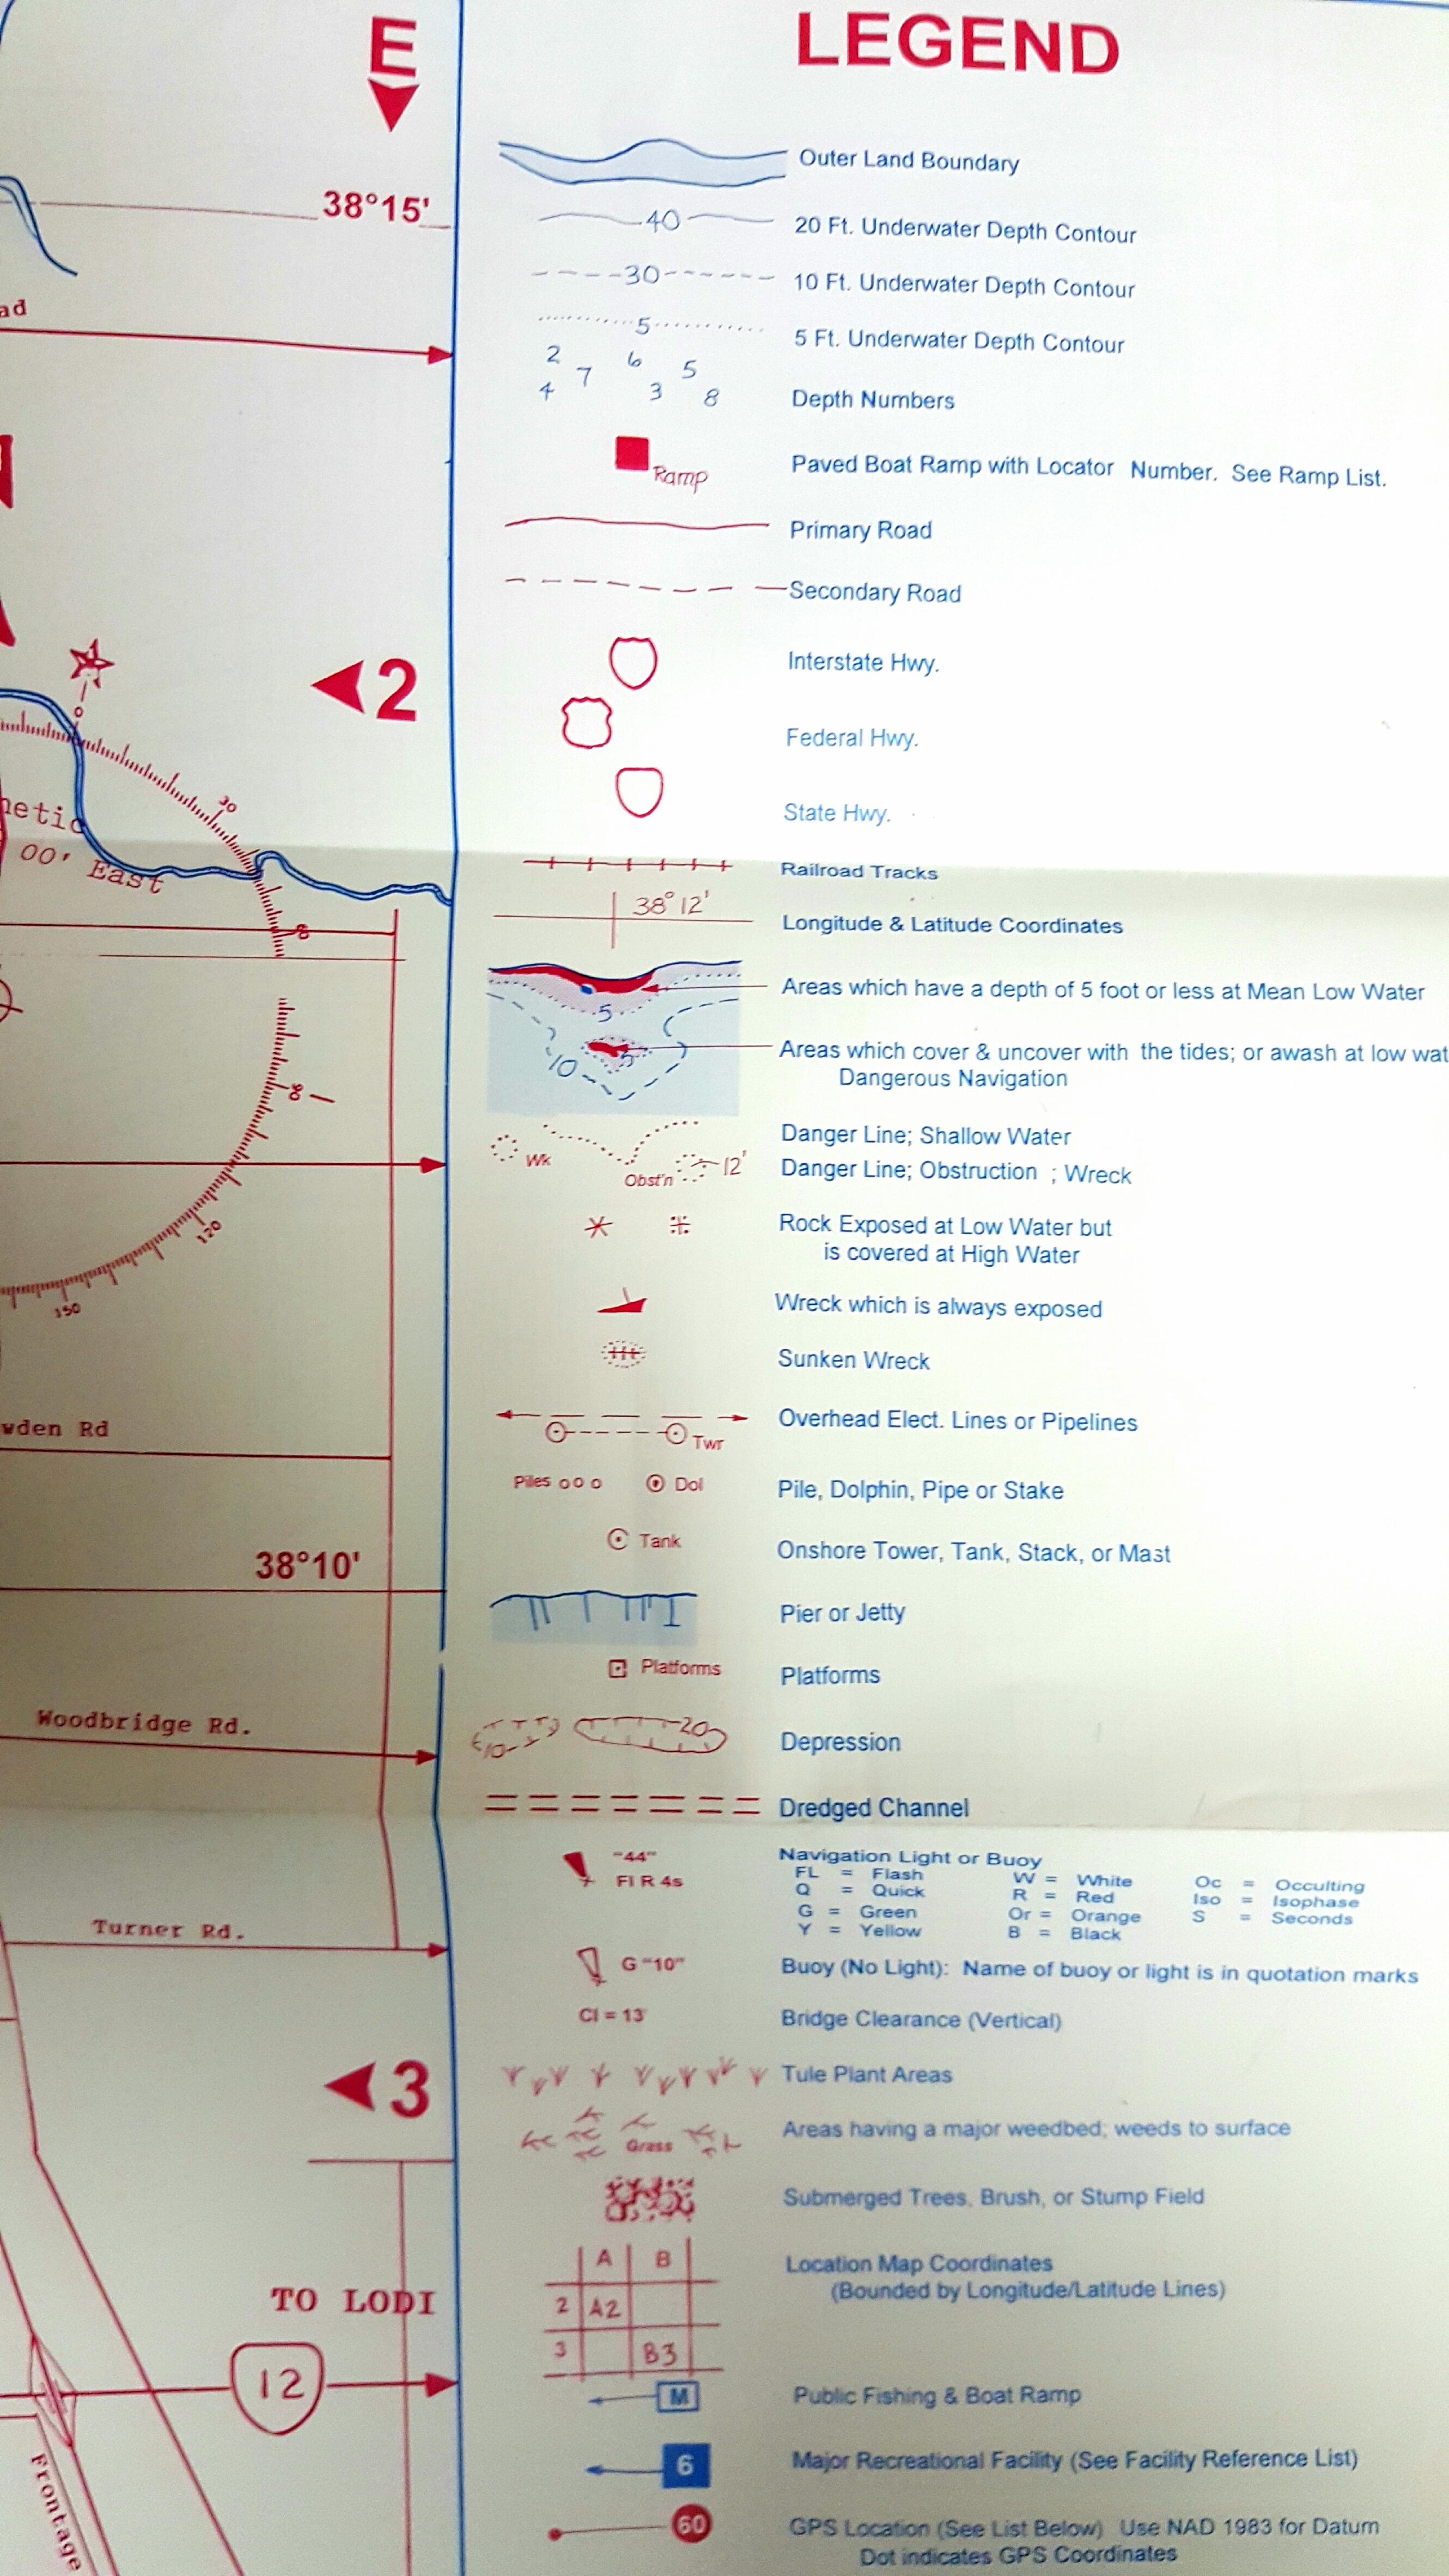 E
LEGEND
Outer Land Boundary
38°15'
40
20 Ft. Underwater Depth Contour
30
10 Ft. Underwater Depth Contour
ad
5
5 Ft. Underwater Depth Contour
2 7 6 5
4 3 8
Depth Numbers
Ramp
Paved Boat Ramp with Locator Number. See Ramp List.
Primary Road
Secondary Road
2
Interstate Hwy.
0
Federal Hwy.
30
netic
State Hwy.
00' East
Railroad Tracks
38° 12'
Longitude & Latitude Coordinates
Areas which have a depth of 5 foot or less at Mean Low Water
5
10
5
Areas which cover & uncover with the tides; or awash at low wat
Dangerous Navigation
Danger Line; Shallow Water
Wk
Obst'n
12'
Danger Line; Obstruction ; Wreck
120
Rock Exposed at Low Water but
is covered at High Water
150
Wreck which is always exposed
Sunken Wreck
wden Rd
Twr
Overhead Elect. Lines or Pipelines
Piles
Dol
Pile, Dolphin, Pipe or Stake
38°10'
Tank
Onshore Tower, Tank, Stack, or Mast
Pier or Jetty
Platforms
Platforms
Woodbridge Rd.
10
20
Depression
Dredged Channel
"44"
Fl R 4s
Navigation Light or Buoy
FL = Flash W = White Oc = Occulting
Q = Quick R = Red Iso = Isophase
G = Green Or = Orange S = Seconds
Y = Yellow B = Black
Turner Rd.
G "10"
Buoy (No Light): Name of buoy or light is in quotation marks
Cl = 13'
Bridge Clearance (Vertical)
3
Tule Plant Areas
Grass
Areas having a major weedbed; weeds to surface
Submerged Trees, Brush, or Stump Field
A B
2 A2
3 B3
Location Map Coordinates
(Bounded by Longitude/Latitude Lines)
TO LODI
12
M
Public Fishing & Boat Ramp
6
Major Recreational Facility (See Facility Reference List)
Frontage
60
GPS Location (See List Below) Use NAD 1983 for Datum
Dot indicates GPS Coordinates